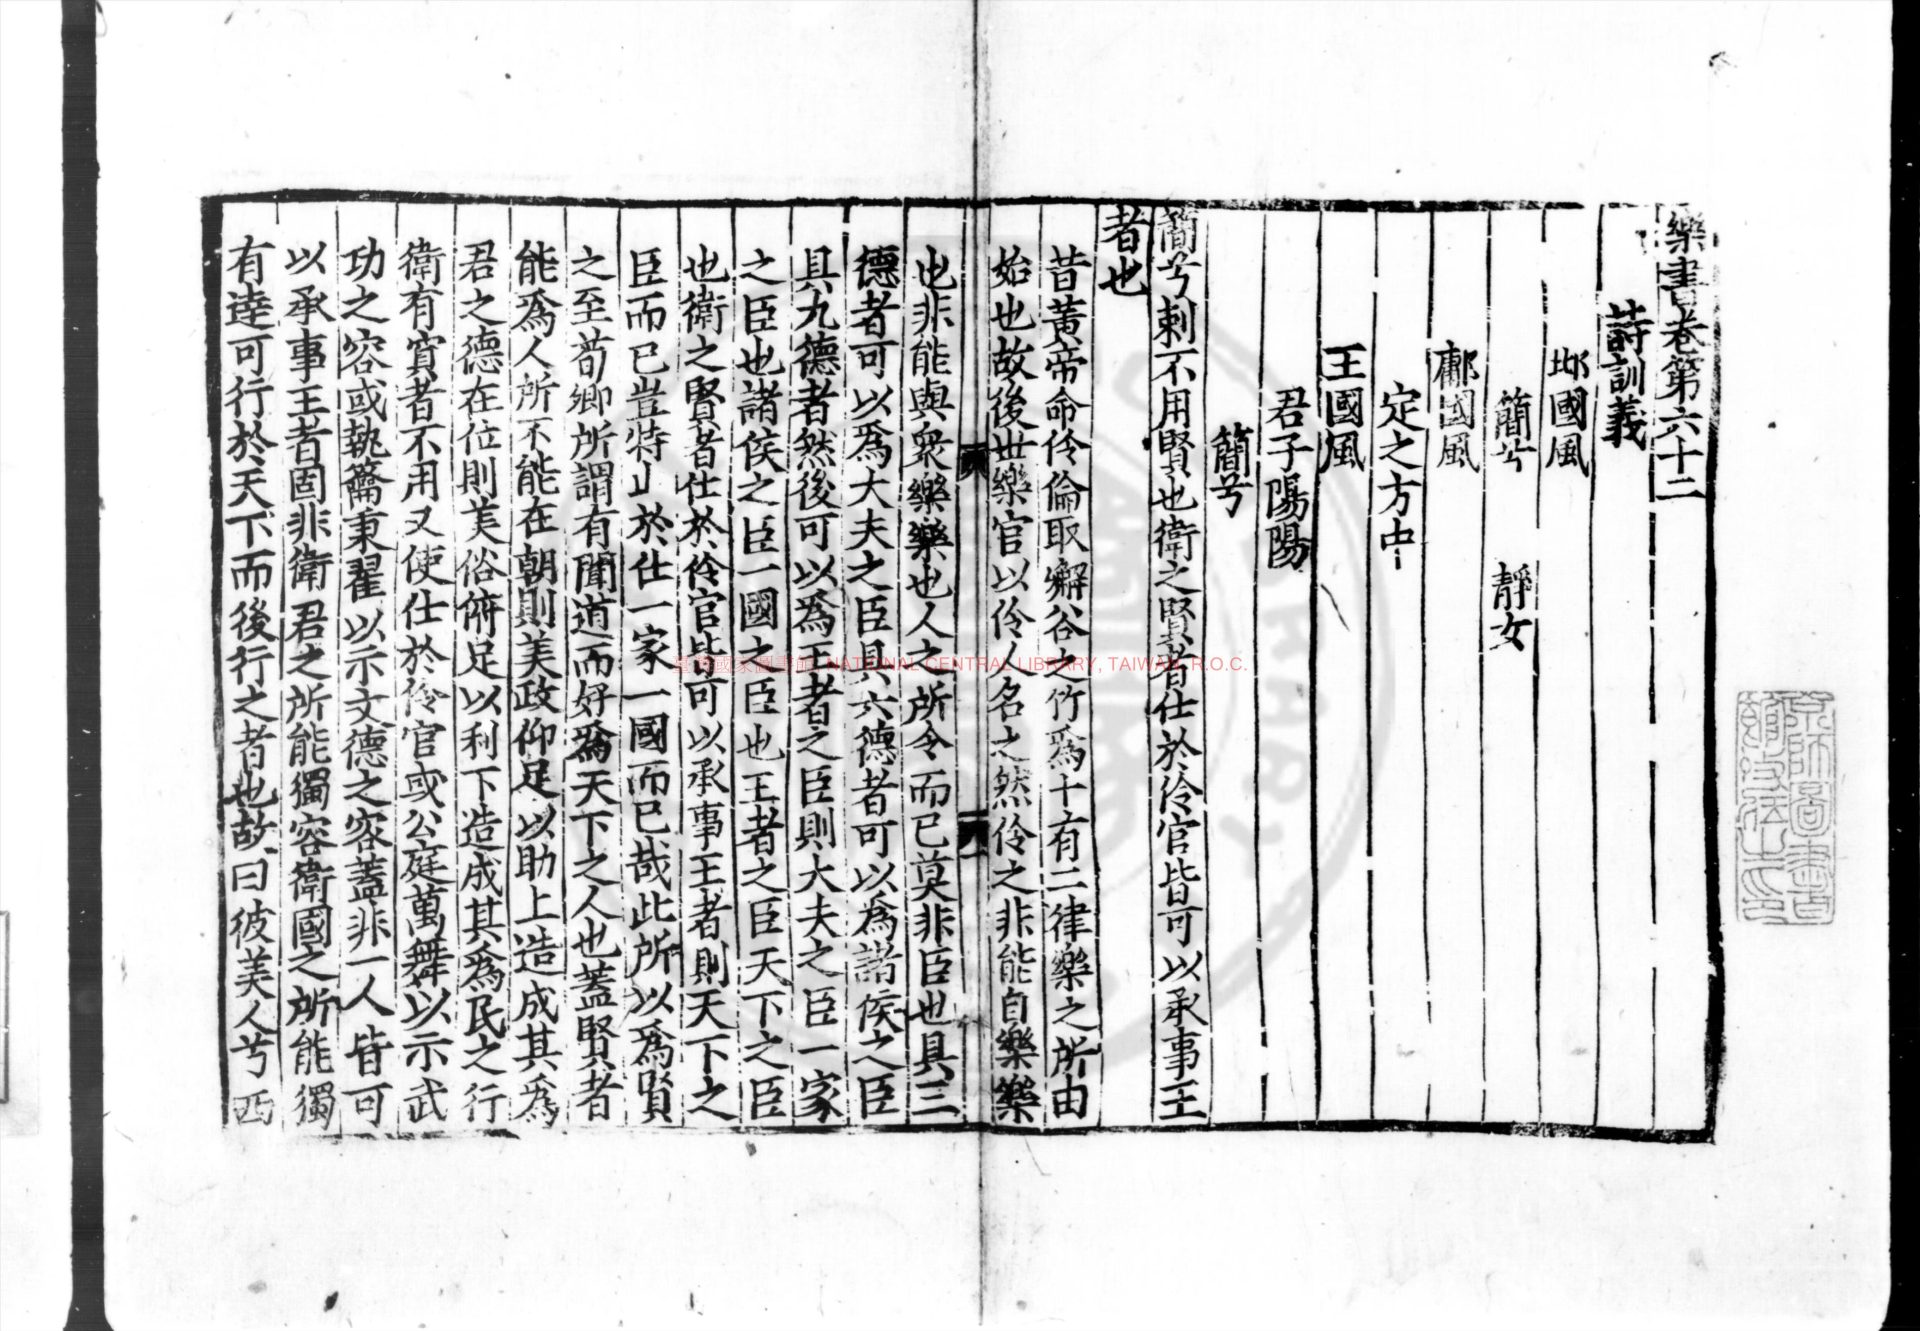 樂書卷第六十二
詩訓義
邶國風
簡兮　靜女
鄘國風
定之方中
王國風
君子陽陽
簡兮
簡兮刺不用賢也衛之賢者仕於伶官皆可以承事王
者也
昔黃帝命伶倫取嶰谷之竹爲十有二律樂之所由
始也故後世樂官以伶人名之然伶之非能自樂樂
也非能與衆樂樂也人之所令而已莫非臣也具三
德者可以爲大夫之臣具六德者可以爲諸侯之臣
具九德者然後可以爲王者之臣則大夫之臣一家
之臣也諸侯之臣一國之臣也王者之臣天下之臣
也衛之賢者仕於伶官皆可以承事王者則天下之
臣而已豈特止於仕一家一國而已哉此所以爲賢
之至荀卿所謂有聞道而好爲天下之人也蓋賢者
能爲人所不能在朝則美政仰足以助上造成其爲
君之德在位則美俗俯足以利下造成其爲民之行
衛有賓者不用又使仕於伶官或公庭萬舞以示武
功之容或執籥秉翟以示文德之容蓋非一人皆可
以承事王者固非衛君之所能獨容衛國之所能獨
有達可行於天下而後行之者也故曰彼美人兮西
臺灣國家圖書館, NATIONAL CENTRAL LIBRARY, TAIWAN, R.O.C.